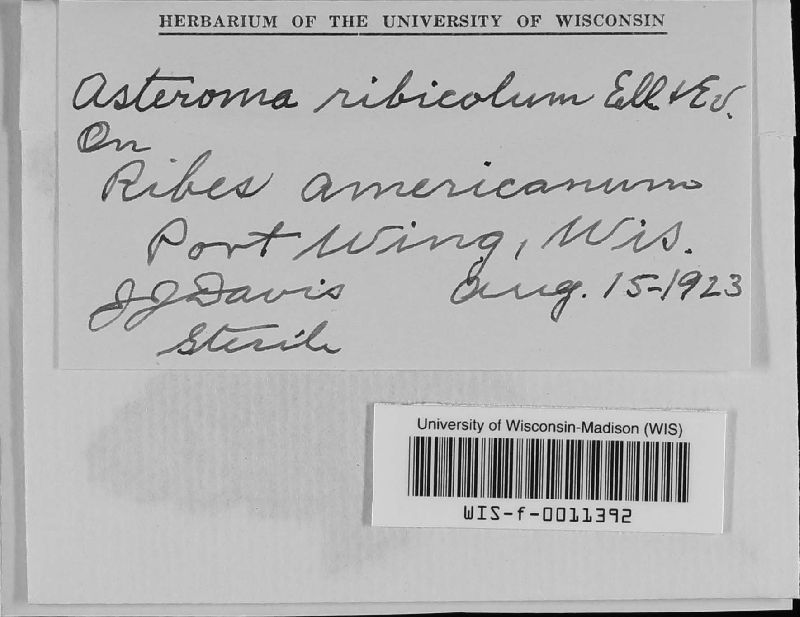 HERBARIUM OF THE UNIVERSITY OF WISCONSIN
Asteroma ribicolum Ell. & Ev.
On
Ribes americanum
Port Wing, Wis.
JJ Davis Aug. 15-1923
Sterile
University of Wisconsin-Madison (WIS)
WIS-f-0011392